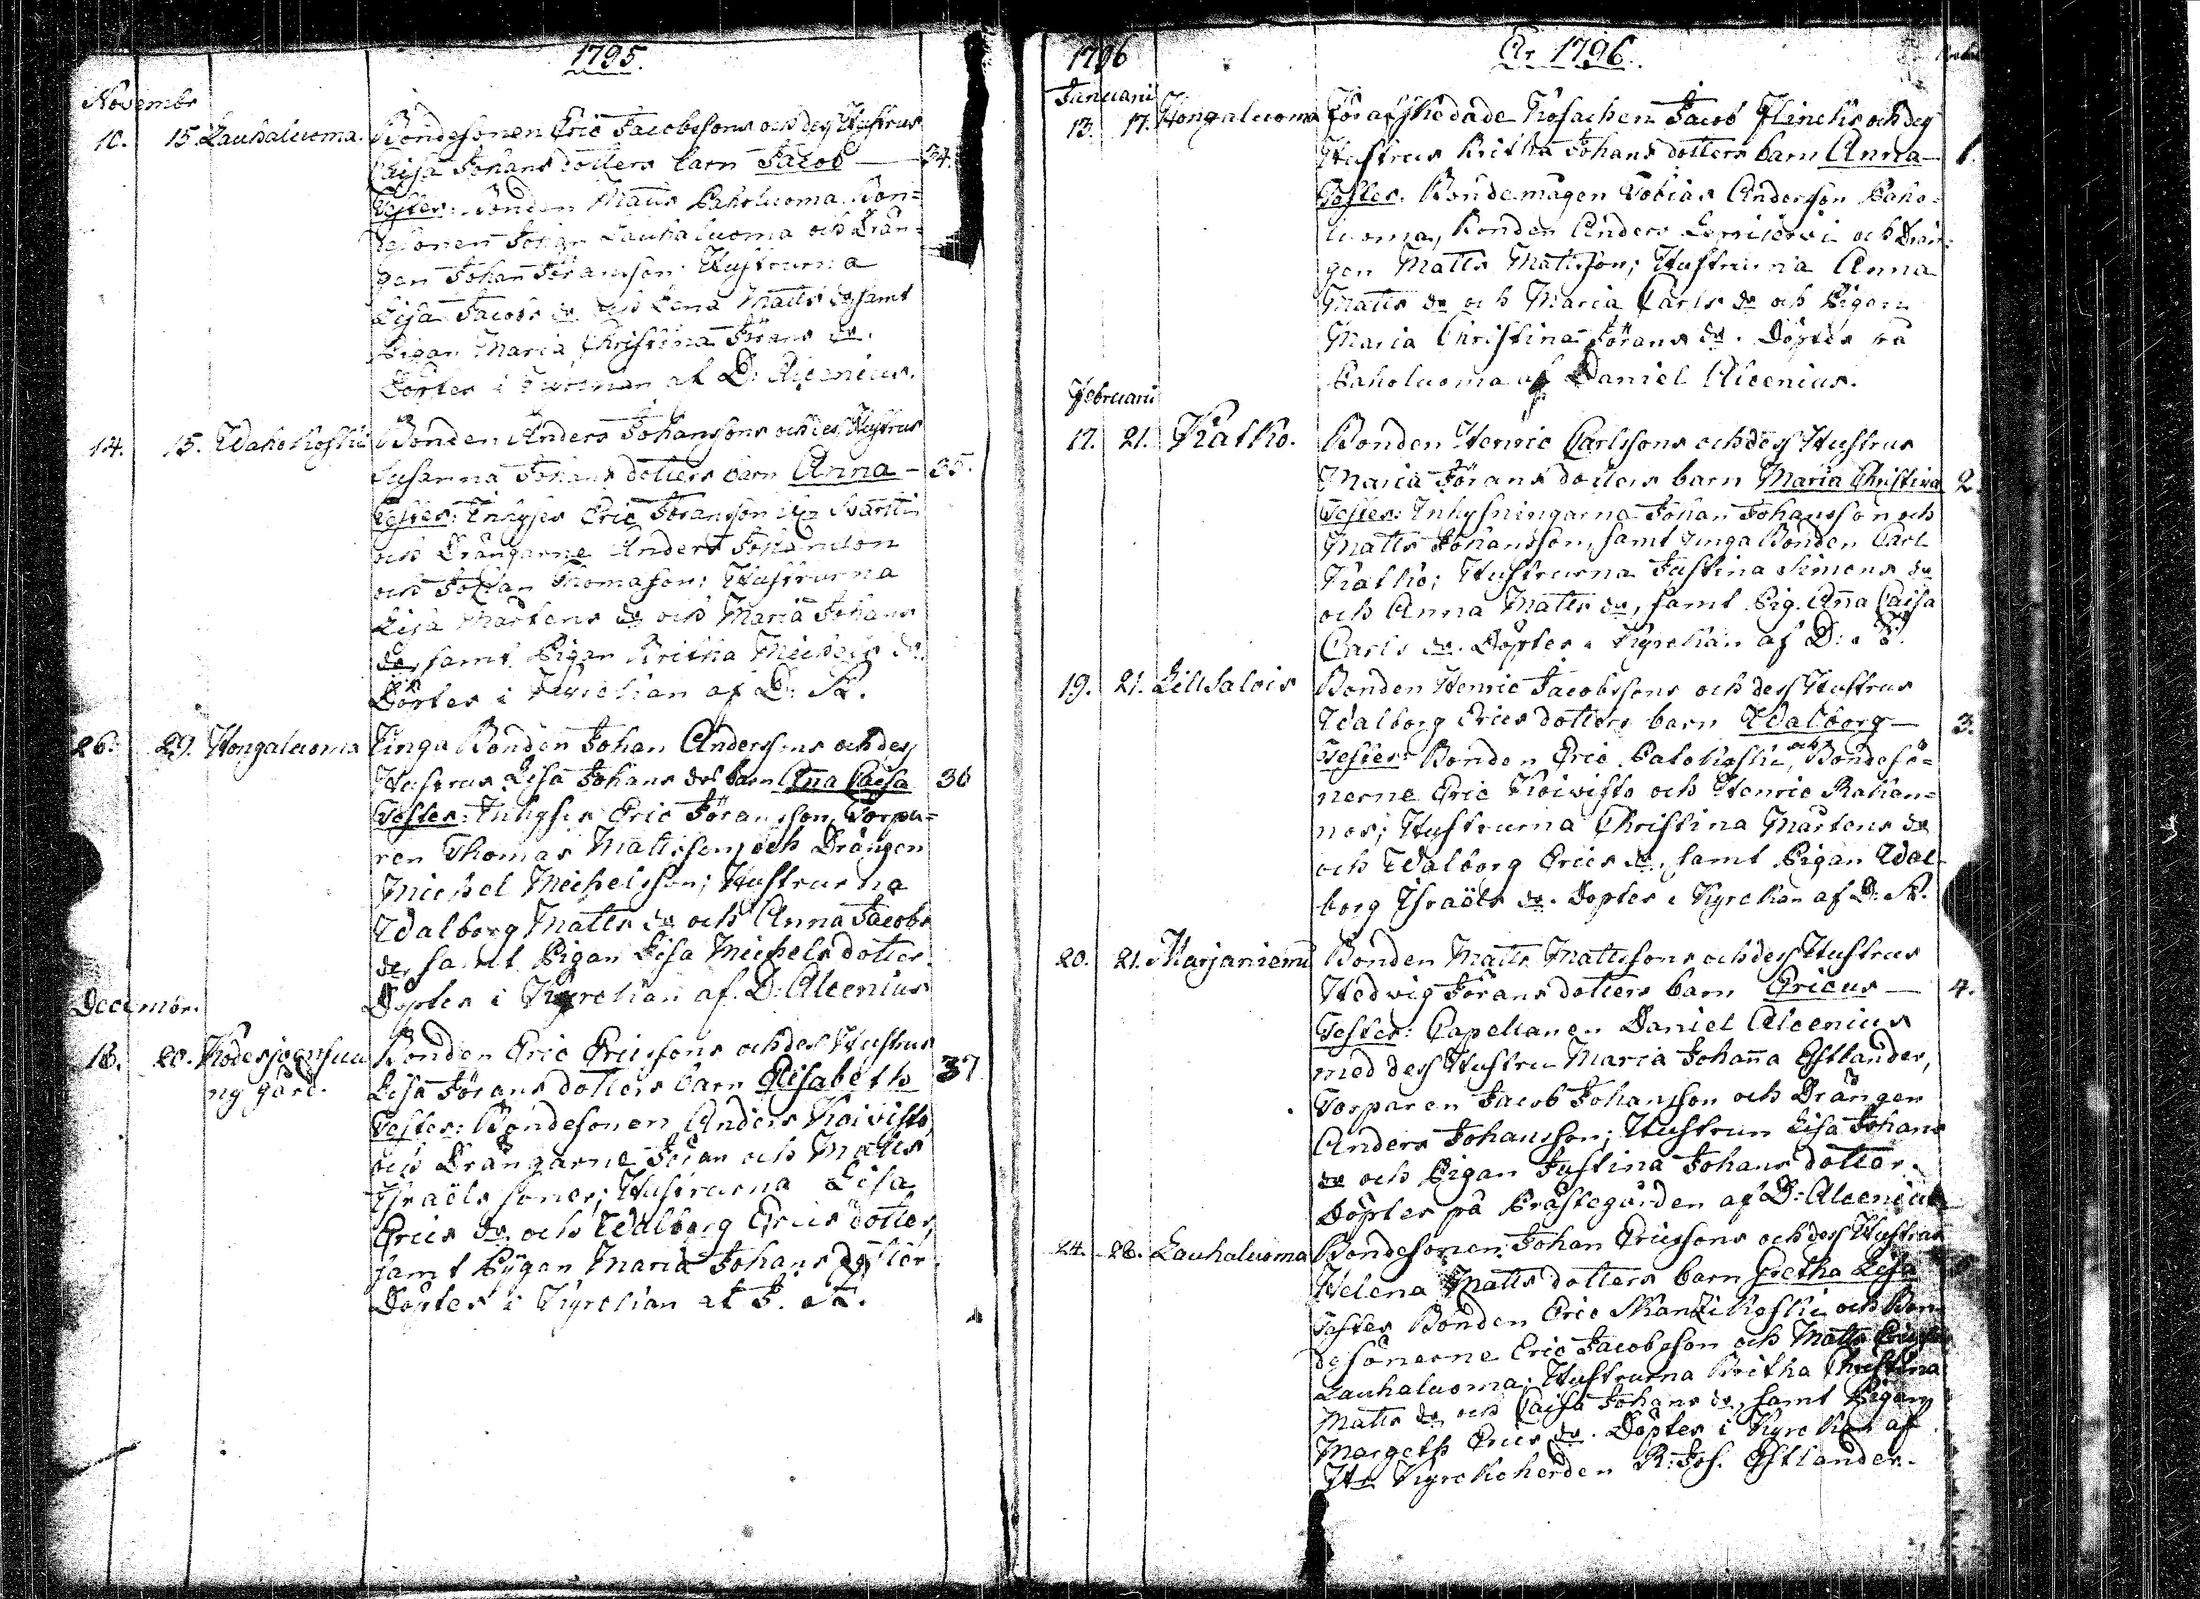 1795.
Novembr
10. 15. Lauhaluoma. Bondesonen Eric Jacobssons och dess Hustrus
Caisa Johans dotters barn Jacob — 34.
Testes: Bonden Matts Paholuoma. Bon-
desonen Johan Lauhaluoma och Drän-
gen Johan Jöransson; Hustrurna
Lisa Jacobs dr och Lena Matts dr samt
Pigan Maria Christina Jörans dr.
Döptes i Kyrckan af D: Alcenius.
14. 15. Wahokoski Bonden Anders Johanssons och des Hustrus
Susanna Johans dotters barn Anna — 35.
Testes: Inhyses Eric Jöransson
och Drängarne Anders Johansson
och Johan Thomasson; Hustrurna
Lisa Mårtens dr och Maria Johans
dr, samt Pigan Britha Michels dr.
Döptes i Kyrckan af D: A.
26. 29. Hongaluoma Unga Bonden Johan Anderssons och des
Hustrus Lisa Johans drs barn Aña Caisa 36
Testes: Inhyses Eric Jöransson, Torpa-
ren Thomas Mattsson, och Drängen
Michel Michelsson; Hustrurna
Walborg Matts dr och Anna Jacobs
dr, samt Pigan Lisa Michels dotter.
Döptes i Kyrckan af D: Alcenius
Decembr.
18. 20. Kodesjoensuu Bonden Eric Ericssons och des Hustrus
ny gård. Lisa Jörans dotters barn Elisabeth 37
Testes: Bondesonen Anders Koivisto,
och Drängarne Jöran och Matts
Israels söner; Hustrurna Lisa
Erics dr och Walborg Erics dotter,
samt Pigan Maria Johans dotter.
Döptes i Kyrckan af D. A.
1796
Ar 1796.
Januarii
13. 17. Hongaluoma Förafskedade Kosacken Jacob Flincks och des
Hustrus Britha Johans dotters barn Anna — 1.
Testes. Bondemågen Tobias Andersson Paho-
luoma, Bonden Anders och Drän-
gen Matts Mattsson; Hustrurna Anna
Matts dr och Maria Carls dr och Pigan
Maria Christina Jörans dr. Döptes på
Paholuoma af Daniel Alcenius.
Februarii
17. 21. Katko. Bonden Henric Carlssons och dess Hustrus
Maria Jörans dotters barn Maria Christina 2.
Testes: Inhysningarna Johan Johansson och
Matts Johansson, samt unga Bonden Carl
Katko; Hustrurna Justina Simons dr
och Anna Matts dr, samt Pig. Aña Caisa
Carls dr. Döptes i Kyrckan af D: A.
19. 21. Lill Salois Bonden Henric Jacobssons och dess Hustrus
Walborg Erics dotters barn Walborg — 3.
Testes: Bonden Eric Palokoski, och Bondesö-
nerne Eric Koivisto och Henric Rahkan-
nos; Hustrurna Christina Mårtens dr
och Walborg Erics dr, samt Pigan Wal-
borg Israëls dr. Döptes i Kyrckan af D: A.
20. 21. Karjaniemi Bonden Matts Mattssons och dess Hustrus
Hedwig Jörans dotters barn Ericus — 4.
Testes: Capellanen Daniel Alcenius
med dess Hustru Maria Johaña Estlander,
Torparen Jacob Johansson och Drängen
Anders Johansson; Hustrun Lisa Johans
dr och Pigan Justina Johans dotter.
Döptes på Prästegården af D: Alcenius
24. 28. Lauhaluoma Bondesonen Johan Ericssons och dess Hustrus
Helena Matts dotters barn Gretha Lisa
Testes Bonden Eric Skantzikoski och Bon-
desönerne Eric Jacobsson och Matts Ericsson
Lauhaluoma; Hustrurna Britha Christina
Matts dr och Caisa Johans dr, samt Pigan
Margeth Erics dr. Döptes i Kyrckan af
Hr Kyrckoherden R: Jos. Estlander.